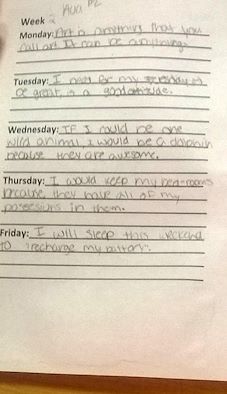 Week
Monday: Art is anything that you
call art. It can be anything.
Tuesday: I need for my to
be great, is a good attitude.
Wednesday: IF I could be one
wild animal, I would be a dolphin
because they are awesome.
Thursday: I would keep my bedrooms
because, they have all of my
possesions in them.
Friday: I will sleep this weekend
TO "recharge my battery".